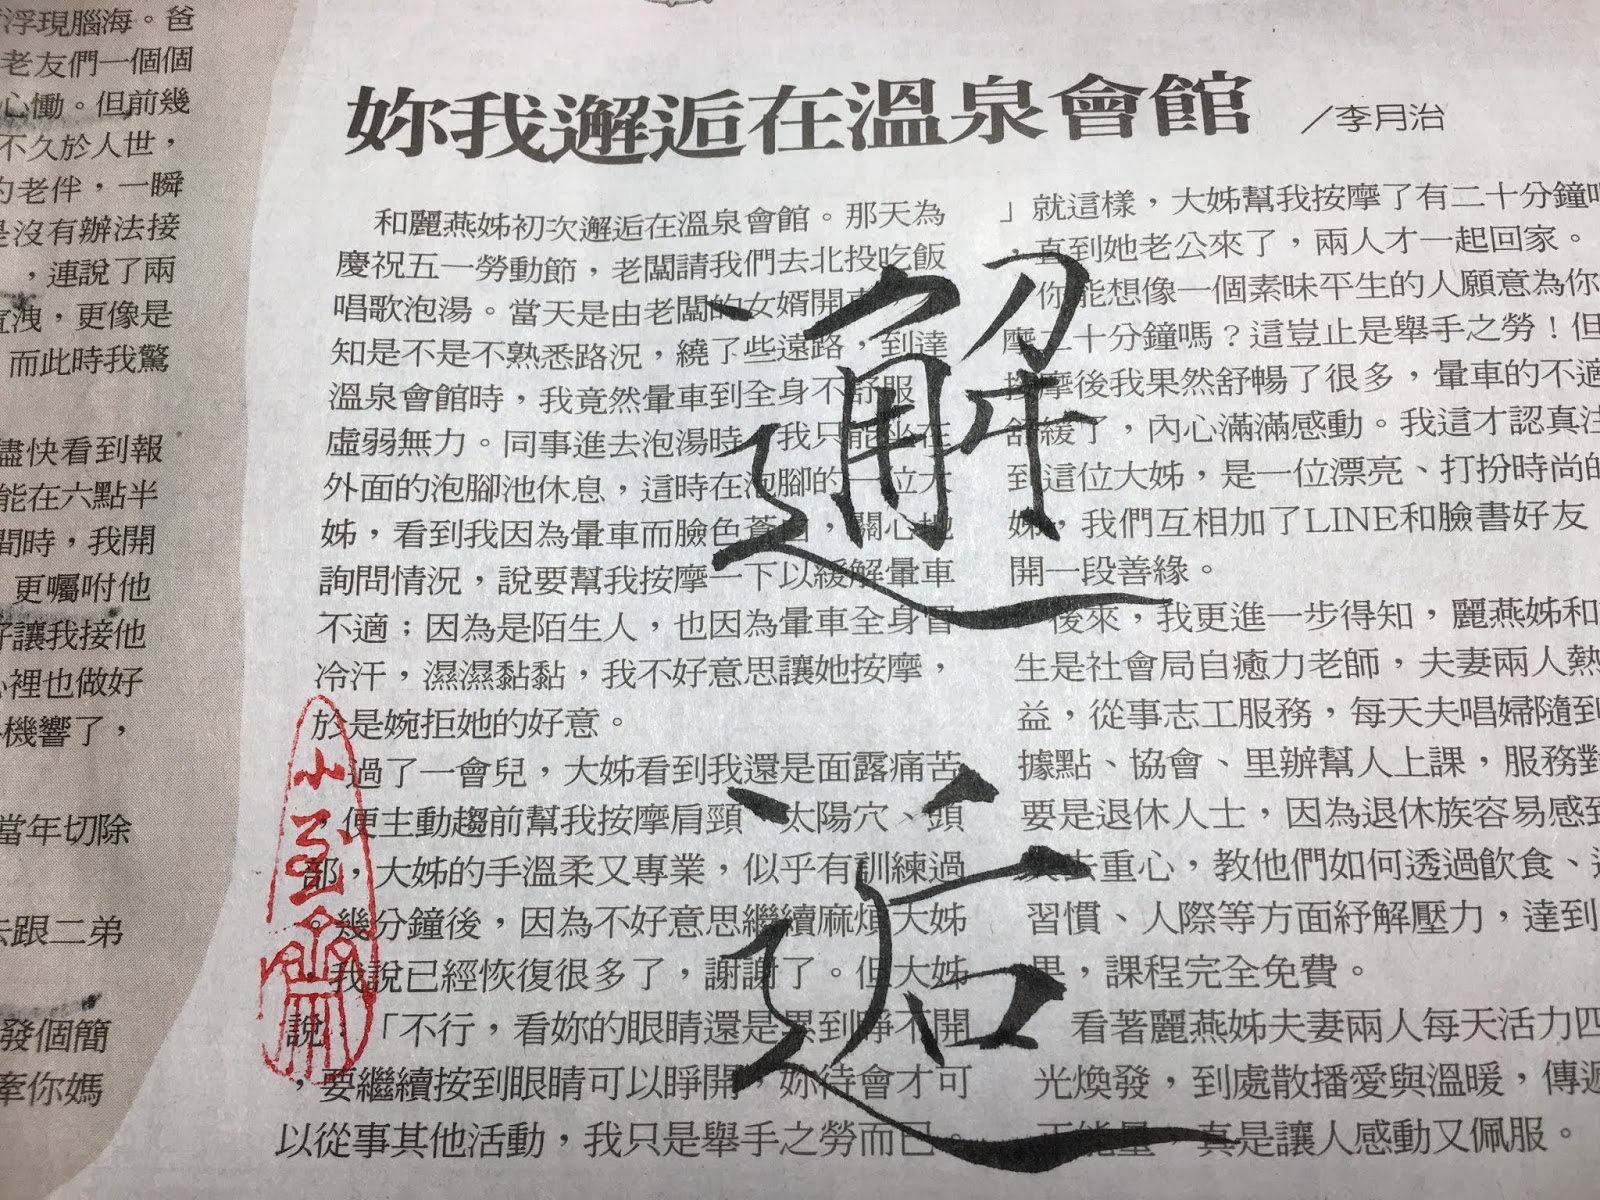 浮現腦海。爸
老友們一個個
心慟。但前幾
不久於人世，
的老伴，一瞬
是沒有辦法接
，連說了兩
宣洩，更像是
而此時我驚
儘快看到報
能在六點半
間時，我開
更囑咐他
好讓我接他
心裡也做好
機響了，
當年切除
去跟二弟
發個簡
牽你媽
妳我邂逅在溫泉會館
／李月治
和麗燕姊初次邂逅在溫泉會館。那天為
慶祝五一勞動節，老闆請我們去北投吃飯
唱歌泡湯。當天是由老闆的女婿開車
知是不是不熟悉路況，繞了些遠路，到達
溫泉會館時，我竟然暈車到全身不舒服
虛弱無力。同事進去泡湯時，我只能坐在
外面的泡腳池休息，這時在泡腳的一位大
姊，看到我因為暈車而臉色蒼白，關心地
詢問情況，說要幫我按摩一下以緩解暈車
不適；因為是陌生人，也因為暈車全身冒
冷汗，濕濕黏黏，我不好意思讓她按摩，
於是婉拒她的好意。
過了一會兒，大姊看到我還是面露痛苦
，便主動趨前幫我按摩肩頸、太陽穴、頭
部，大姊的手溫柔又專業，似乎有訓練過
。幾分鐘後，因為不好意思繼續麻煩大姊
，我說已經恢復很多了，謝謝了。但大姊
說：「不行，看妳的眼睛還是累到睜不開
，要繼續按到眼睛可以睜開，妳待會才可
以從事其他活動，我只是舉手之勞而已。
」就這樣，大姊幫我按摩了有二十分鐘吧
，直到她老公來了，兩人才一起回家。
你能想像一個素昧平生的人願意為你
摩二十分鐘嗎？這豈止是舉手之勞！但
按摩後我果然舒暢了很多，暈車的不適
舒緩了，內心滿滿感動。我這才認真注
到這位大姊，是一位漂亮、打扮時尚的
姊，我們互相加了LINE和臉書好友
開一段善緣。
後來，我更進一步得知，麗燕姊和
生是社會局自癒力老師，夫妻兩人熱
益，從事志工服務，每天夫唱婦隨到
據點、協會、里辦幫人上課，服務對
要是退休人士，因為退休族容易感到
失去重心，教他們如何透過飲食、
習慣、人際等方面紓解壓力，達到
果，課程完全免費。
看著麗燕姊夫妻兩人每天活力四
光煥發，到處散播愛與溫暖，傳遞
正能量，真是讓人感動又佩服。
邂
逅
小至齋